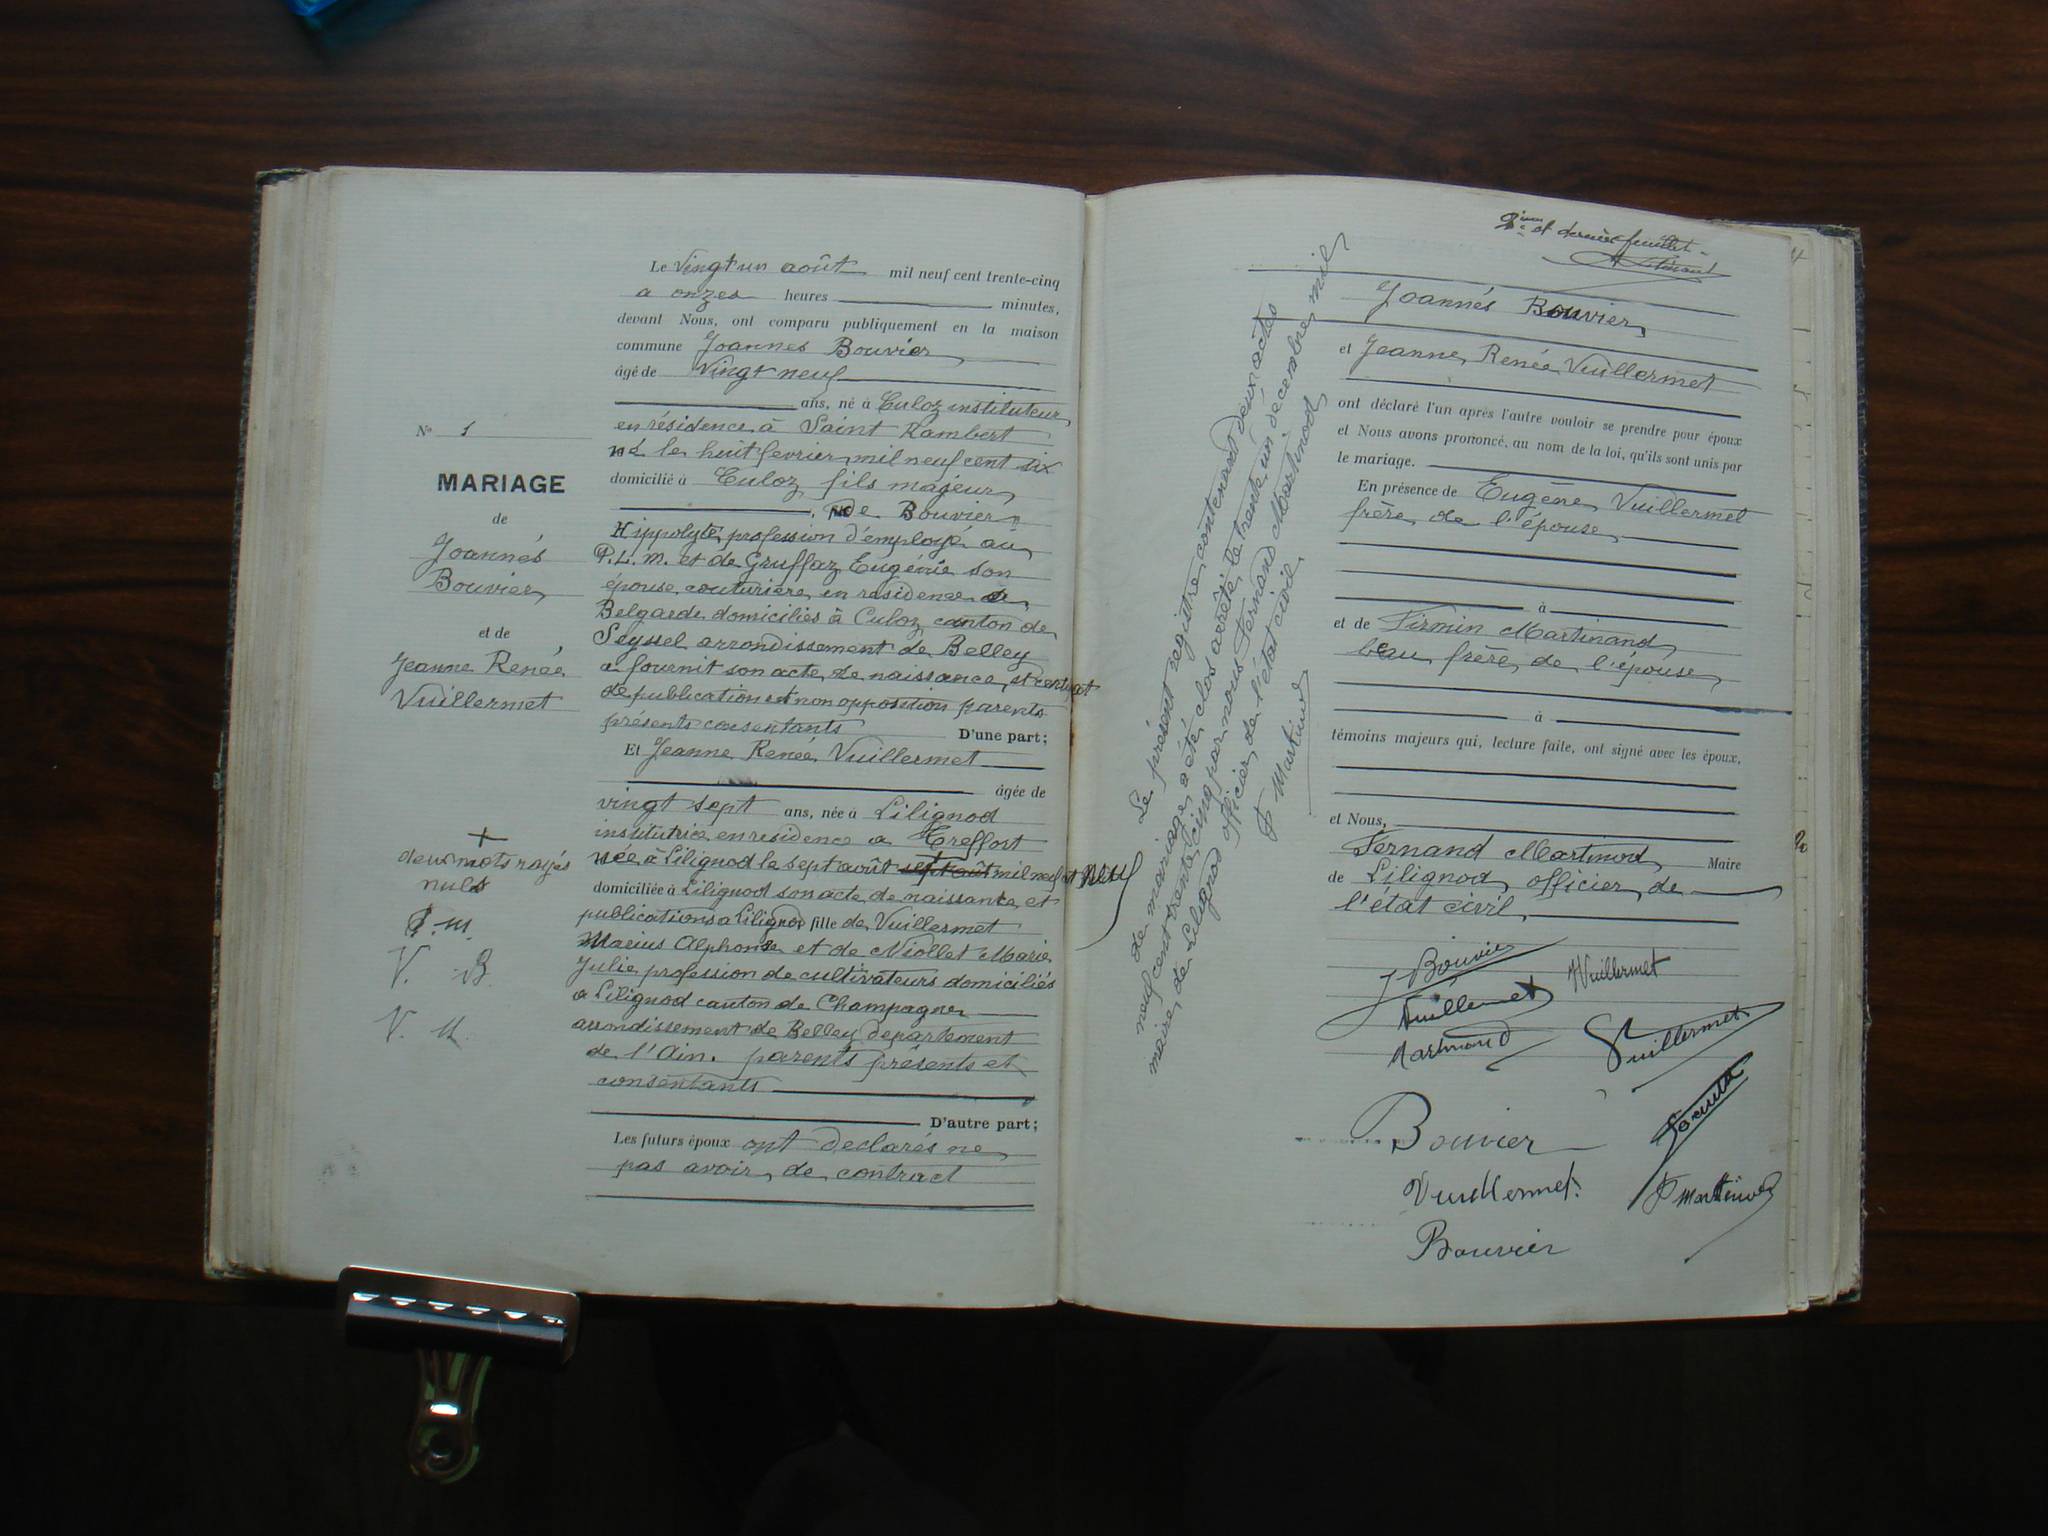 N° 1
MARIAGE
de
Joannés
Bouvier
et de
Jeanne Renée
Vuillermet
+
deux mots rayés
nuls
V. B.
V. M.
Le Vingt un août mil neuf cent trente-cinq
a onzes heures minutes,
devant Nous, ont comparu publiquement en la maison
commune Joannes Bouvier
âgé de Vingt neuf
ans, né à Culoz instituteur
en résidence à Saint Rambert
né le huit fevrier mil neuf cent six
domicilié à Culoz fils majeur
, de Bouvier
Hippolyte profession d'employé au
P.L.M. et de Gruffaz Eugénie son
épouse couturière en residence
Belgarde domiciliés à Culoz canton de
Seyssel arrondissement de Belley
a fournit son acte de naissance, et certificat
de publication et non opposition parents
présents consentants D'une part;
Et Jeanne Renée Vuillermet
âgée de
vingt sept ans, née à Lilignod
institutrice en residence a Treffort
née à Lilignod le sept août sept août mil neuf et neuf
domiciliée à Lilignod son acte de naissance et
publications a Lilignod fille de Vuillermet
Marius Alphonse et de Niollet Marie
Julie profession de cultivateurs domiciliés
a Lilignod canton de Champagne
arrondissement de Belley departement
de l'Ain. parents présents et
consentants
D'autre part;
Les futurs époux ont declarés ne
pas avoir de contract
2ième et dernier feuillet
Joannés Bouvier
et Jeanne Renée Vuillermet
ont déclaré l'un après l'autre vouloir se prendre pour époux
et Nous avons prononcé, au nom de la loi, qu'ils sont unis par
le mariage.
En présence de Eugène Vuillermet
frère de l'épouse
à
et de Firmin Martinand
beau frère de l'épouse
à
témoins majeurs qui, lecture faite, ont signé avec les époux,
et Nous,
Fernand Martinod Maire
de Lilignod officier de
l'état civil
J Bouvier
Vuillermet
Vuillermet
Martinand
Vuillermet
Bouvier
Vuillermet
F Martinod
Bouvier
Le présent registre contenant deux actes
de mariage a été clos arrêté le trente un decembre mil
neuf cent trente cinq par nous Fernand Martinod
maire de Lilignod officier de l'état civil
F Martinod